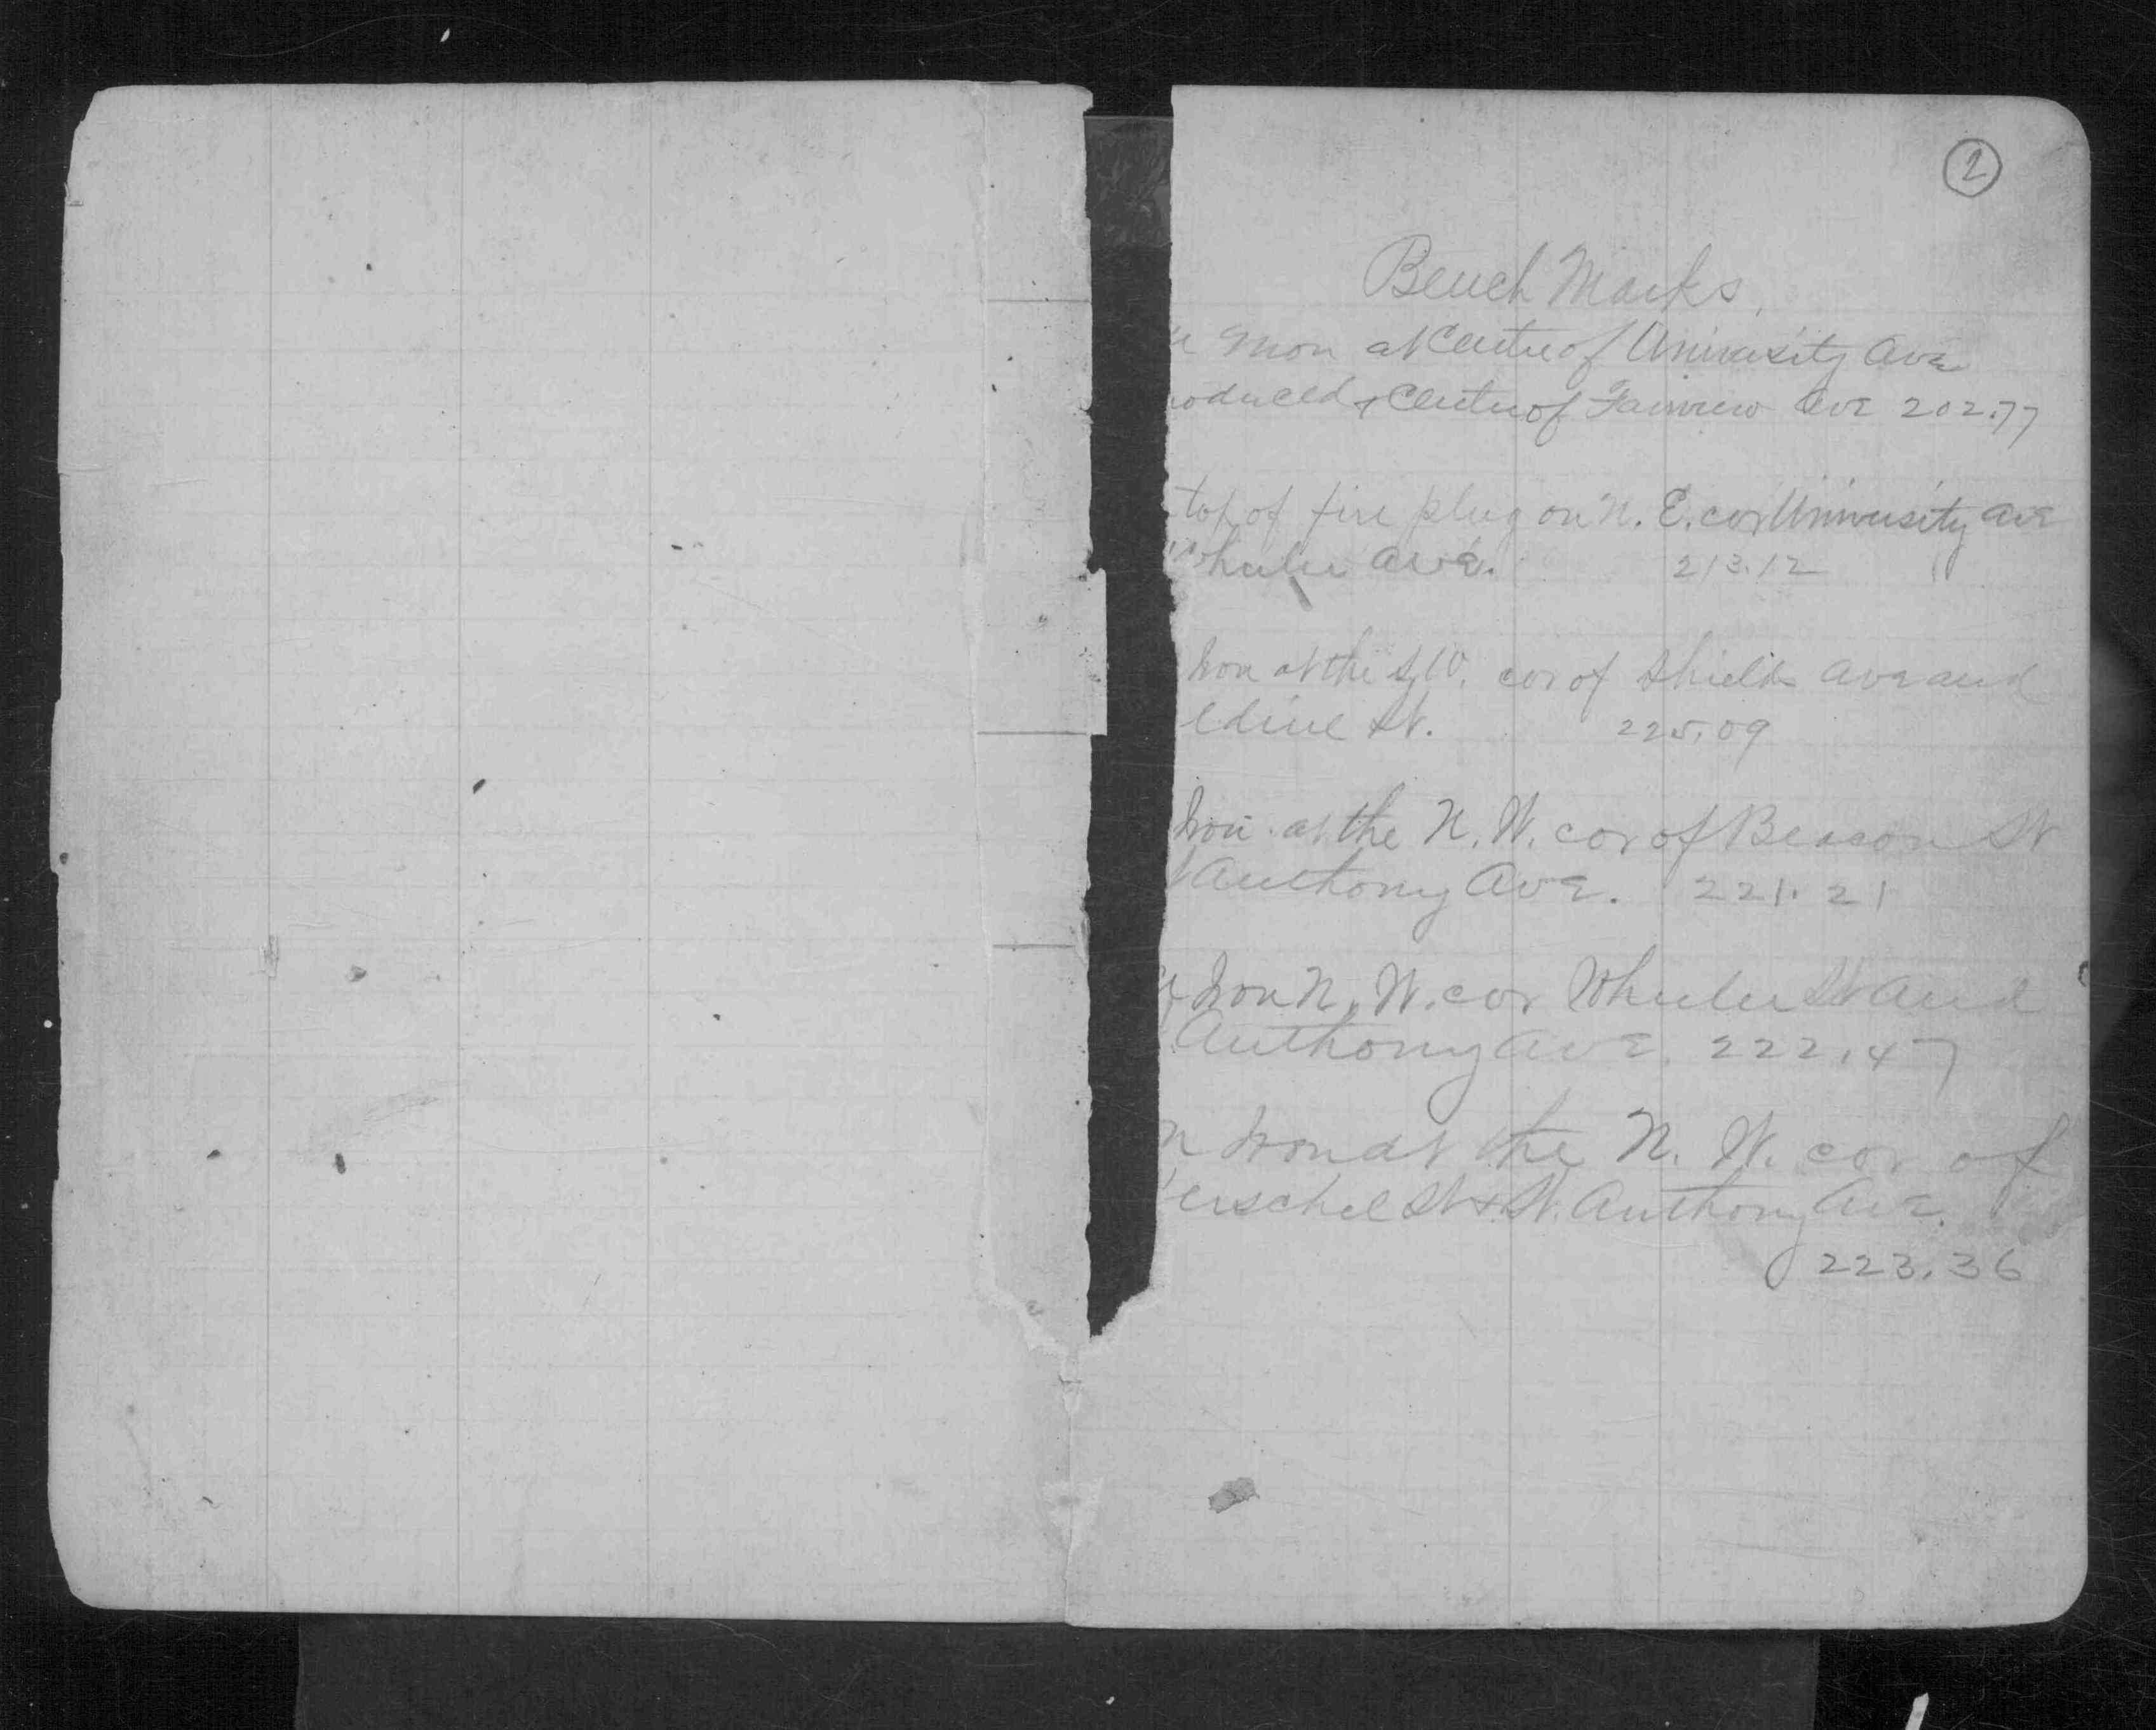 2
Bench Marks,
Mon at Centre of University Ave
oduced & Centre of Fairview Ave 202.77
top of fire plug on N. E. cor University Ave
Wheeler Ave. 213.12
Iron at the S,W. cor of Shields Ave and
ldine St. 225.09
Iron at the N. W. cor of Beacon St
Anthony Ave. 221.21
Iron N. W. cor Wheeler St and
Anthony Ave. 222.47
n Iron at the N. W. cor of
erschel St & St. Anthony Ave.
223.36